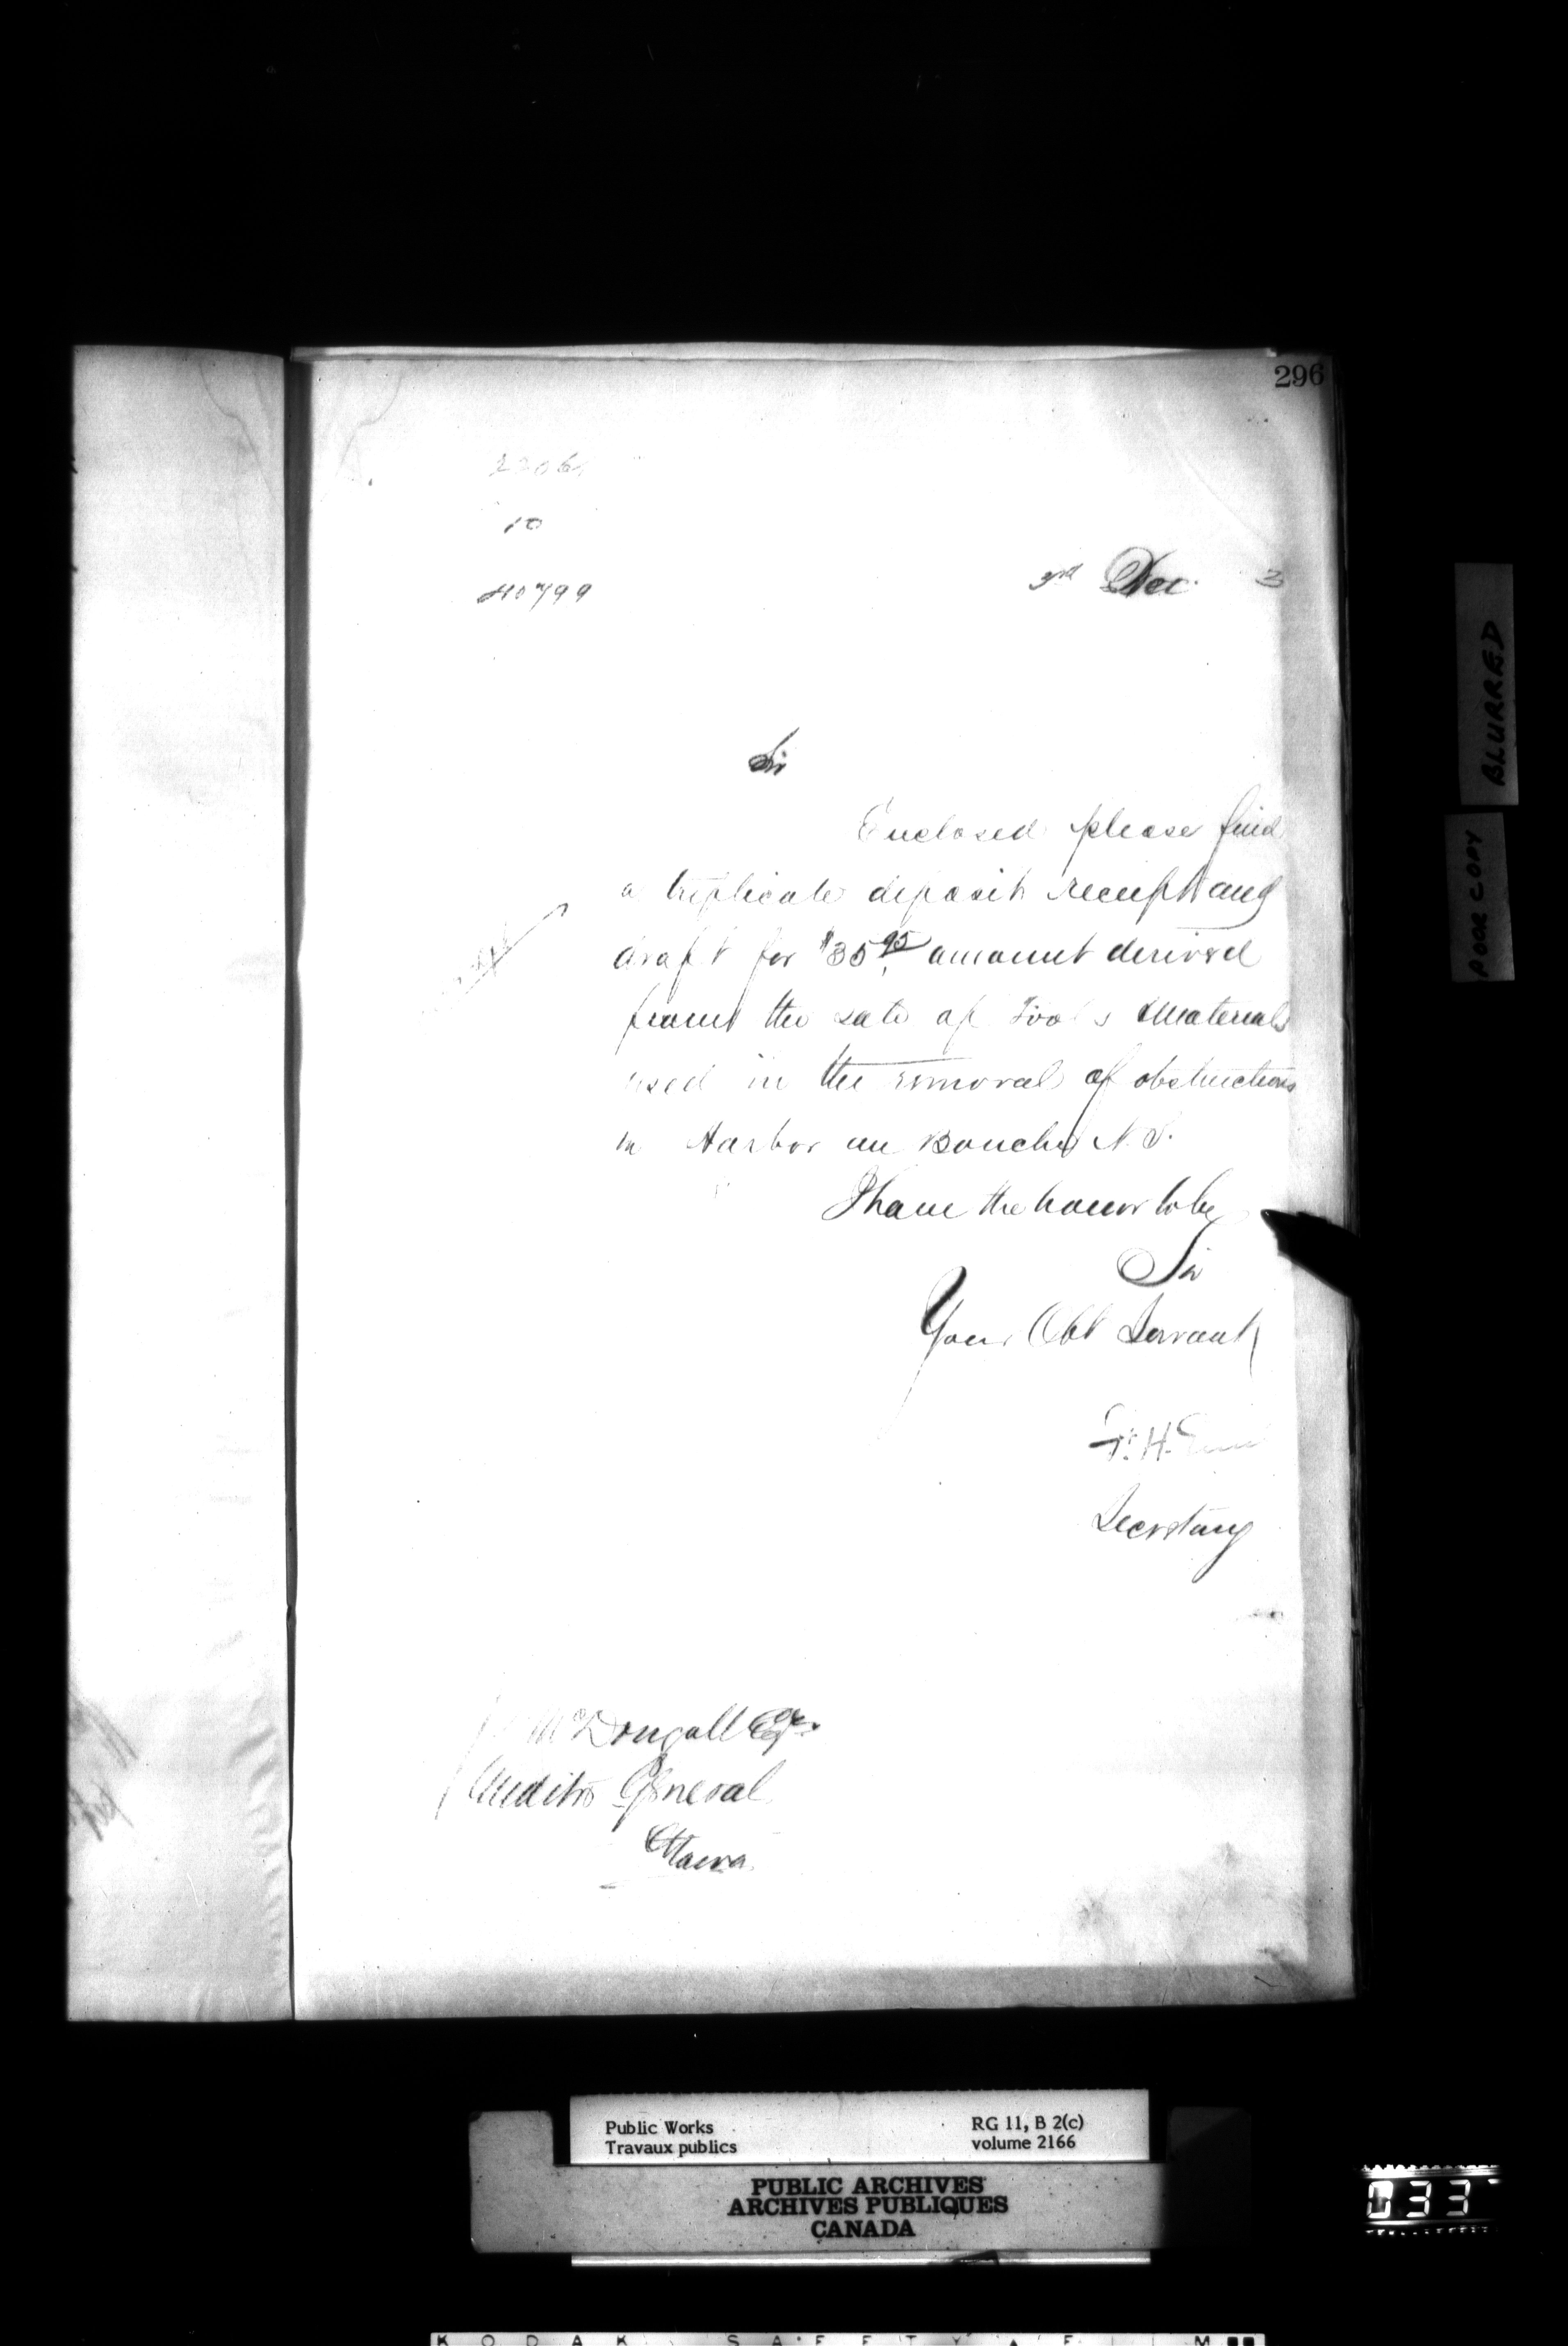 296
10
40799
3rd Dec. 3
Sir
Enclosed please find
a triplicate deposit receipt and
draft for $35.95 amount derived
from the sale of Tools & Materials
used in the removal of obstructions
in Harbor au Bouche N.S.
I have the honor to be
Sir
Your Obt Servant
F. H. Ennis
Secretary
McDougall Esqr.
Auditor General
Ottawa
BLURRED
POOR COPY
Public Works
Travaux publics
RG 11, B 2(c)
volume 2166
PUBLIC ARCHIVES
ARCHIVES PUBLIQUES
CANADA
033
KODAK SAFETY FILM